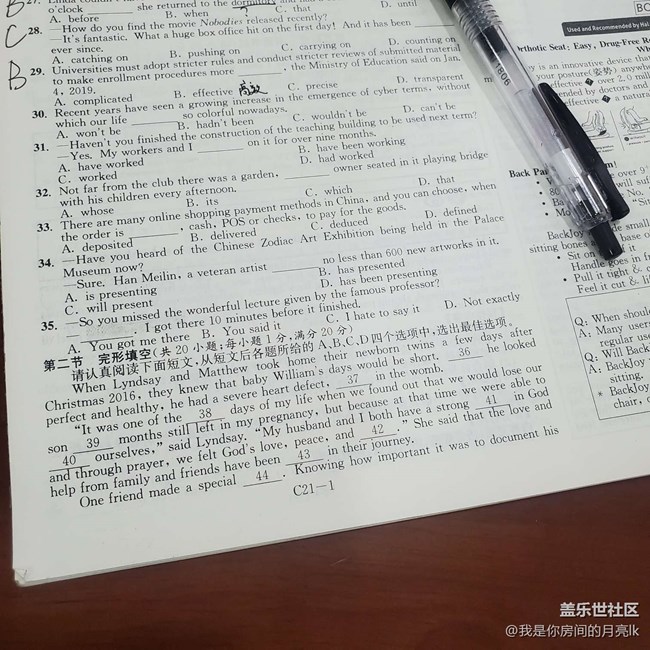 B
o'clock ______ she returned to the dormitory
A. before B. when C. that D. until
C
28. —How do you find the movie Nobodies released recently?
—It's fantastic. What a huge box office hit on the first day! And it has been ______
ever since.
A. catching on B. pushing on C. carrying on D. counting on
B
29. Universities must adopt strict rules and conduct strict reviews of submitted material
to make enrollment procedures more ______, the Ministry of Education said on Jan.
4, 2019.
A. complicated B. effective 高效 C. precise D. transparent
30. Recent years have seen a growing increase in the emergence of cyber terms, without
which our life ______ so colorful nowadays.
A. won't be B. hadn't been C. wouldn't be D. can't be
31. —Haven't you finished the construction of the teaching building to be used next term?
—Yes. My workers and I ______ on it for over nine months.
A. have worked B. have been working
C. worked D. had worked
32. Not far from the club there was a garden, ______ owner seated in it playing bridge
with his children every afternoon.
A. whose B. its C. which D. that
33. There are many online shopping payment methods in China, and you can choose, when
the order is ______, cash, POS or checks, to pay for the goods.
A. deposited B. delivered C. deduced D. defined
34. —Have you heard of the Chinese Zodiac Art Exhibition being held in the Palace
Museum now?
—Sure. Han Meilin, a veteran artist ______ no less than 600 new artworks in it.
A. is presenting B. has presented
C. will present D. has been presenting
35. —So you missed the wonderful lecture given by the famous professor?
—______. I got there 10 minutes before it finished.
A. You got me there B. You said it C. I hate to say it D. Not exactly
第二节 完形填空(共 20 小题;每小题 1 分,满分 20 分)
请认真阅读下面短文,从短文后各题所给的 A、B、C、D 四个选项中,选出最佳选项。
When Lyndsay and Matthew took home their newborn twins a few days after
Christmas 2016, they knew that baby William's days would be short. 36 he looked
perfect and healthy, he had a severe heart defect, 37 in the womb.
"It was one of the 38 days of my life when we found out that we would lose our
son 39 months still left in my pregnancy, but because at that time we were able to
40 ourselves," said Lyndsay. "My husband and I both have a strong 41 in God
and through prayer, we felt God's love, peace, and 42 ." She said that the love and
help from family and friends have been 43 in their journey.
One friend made a special 44 . Knowing how important it was to document his
C21-1
Used and Recommended by
Orthotic Seat: Easy, Drug-Free
is an innovative device
your posture(姿势)
effective ◆ over 2.0
by doctors and
effective ◆ a
1806
Back
BackJoy
sitting bones
Sit on
Handle
Pull it tight &
Feel it cut &
Q: When
A: Many users
regular use.
Q: Will
A: BackJoy
sitting.
* BackJoy
chair,
盖乐世社区
@我是你房间的月亮lk